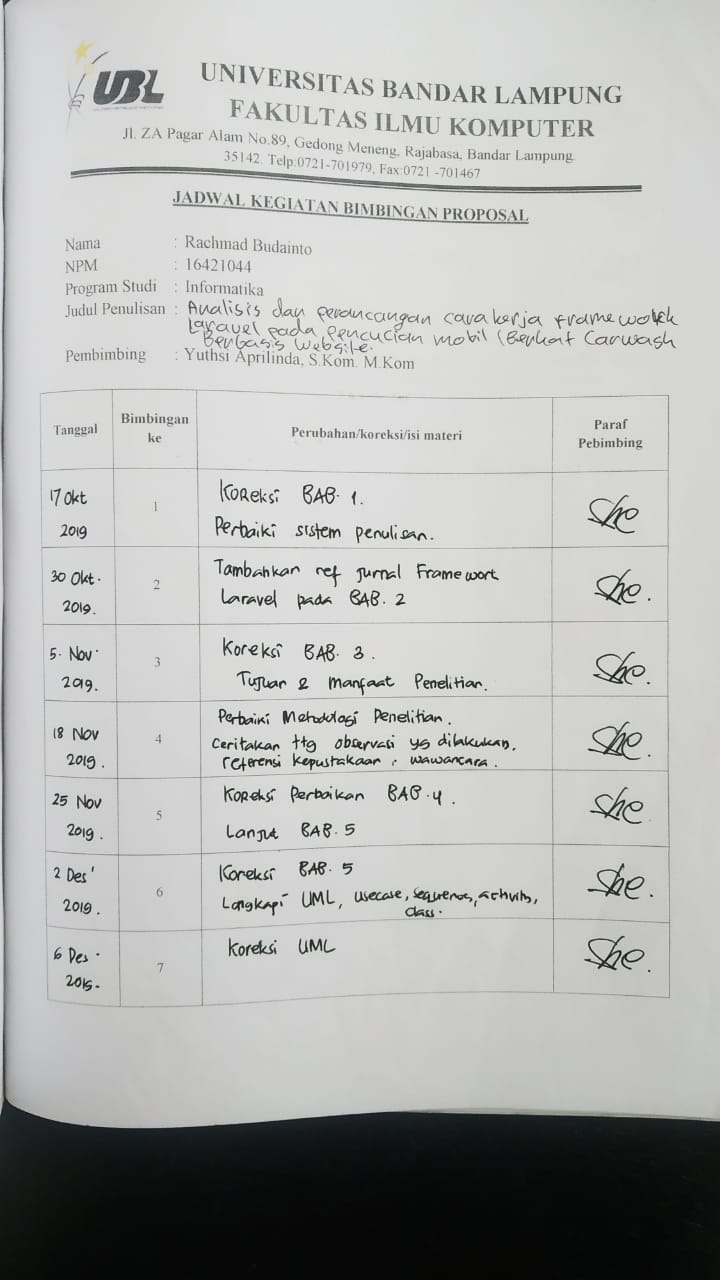 UBL
UNIVERSITAS BANDAR LAMPUNG
FAKULTAS ILMU KOMPUTER
Jl. ZA Pagar Alam No.89, Gedong Meneng, Rajabasa, Bandar Lampung.
35142. Telp:0721-701979, Fax:0721 -701467
JADWAL KEGIATAN BIMBINGAN PROPOSAL
Nama : Rachmad Budainto
NPM : 16421044
Program Studi : Informatika
Judul Penulisan : Analisis dan perancangan cara kerja framework
Laravel pada pencucian mobil (Berkat Carwash
Berbasis Website.
Pembimbing : Yuthsi Aprilinda, S.Kom. M.Kom
Tanggal Bimbingan ke Perubahan/koreksi/isi materi Paraf Pebimbing
17 Okt 2019 1 Koreksi BAB. 1.
Perbaiki sistem penulisan.
30 Okt. 2019. 2 Tambahkan ref jurnal Framework
Laravel pada BAB. 2
5. Nov. 2019. 3 Koreksi BAB. 3.
Tujuan & Manfaat Penelitian.
18 Nov 2019. 4 Perbaiki Metodologi Penelitian.
Ceritakan ttg observasi yg dilakukan,
referensi kepustakaan, wawancara.
25 Nov 2019. 5 Koreksi Perbaikan BAB. 4.
Lanjut BAB. 5
2 Des' 2019. 6 Koreksi BAB. 5
Lengkapi UML, usecase, sequence, activity,
class.
6 Des. 2019. 7 Koreksi UML